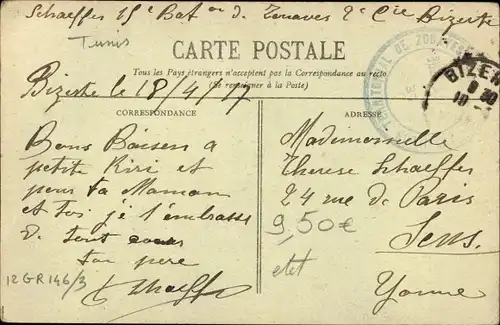 Schaeffer 15e Bat on de Zouaves 2e Cie Bizerte
Tunis
CARTE POSTALE
Tous les Pays étrangers n'acceptent pas la Correspondance au recto
(Se renseigner à la Poste)
Bizerte le 18/4/17
CORRESPONDANCE
ADRESSE
Bons Baisers a
petite Kiri et
pour ta Maman
et toi je t'embrasse
de tout coeur
ton pere
Schaeffer
12 GR 146/3
Mademoiselle
Therese Schaeffer
24 rue de Paris
9,50€
Sens
etet
Yonne
DE ZOUAVES
BIZER